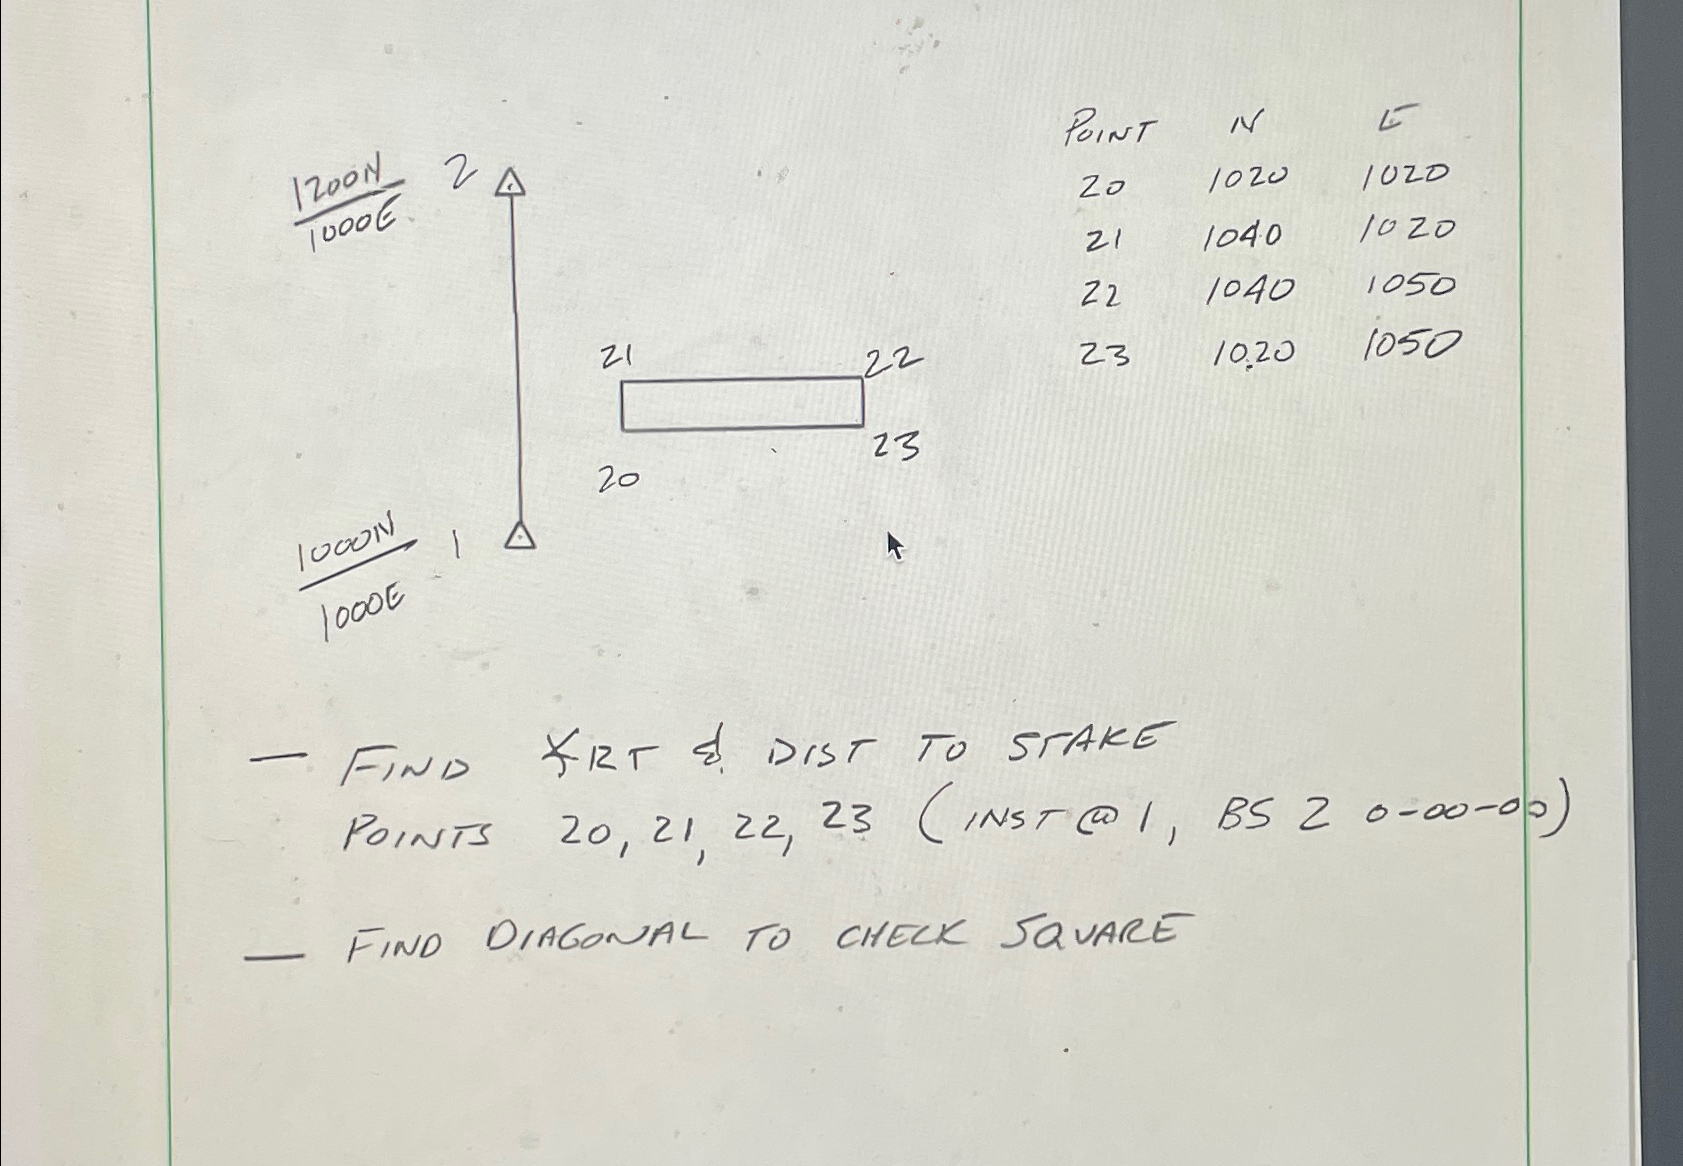 POINT N E
20 1020 1020
21 1040 1020
22 1040 1050
23 1020 1050
1200N 2
1000E
21 22
23
20
1000N 1
1000E
— FIND ∡RT & DIST TO STAKE
POINTS 20, 21, 22, 23 (INST @ 1, BS 2 0-00-00)
— FIND DIAGONAL TO CHECK SQUARE